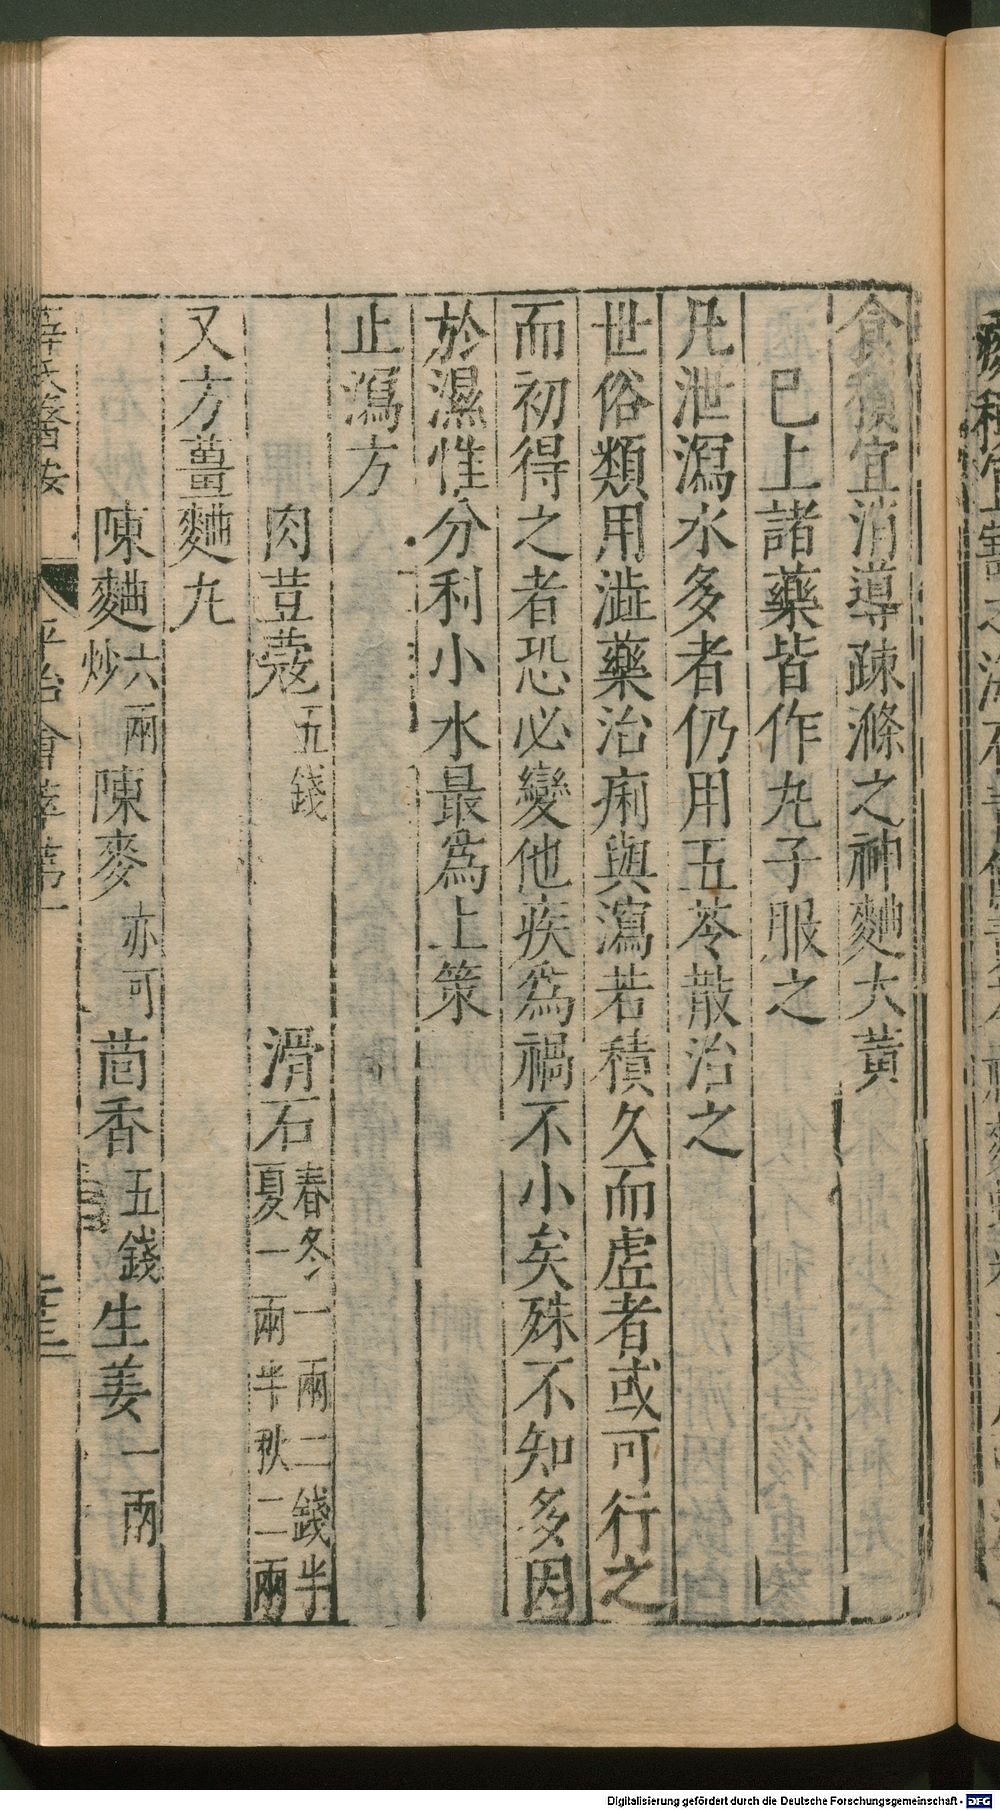 食積宜消導疎滌之神麯大黃
已上諸藥皆作丸子服之
凡泄瀉水多者仍用五苓散治之
世俗類用澁藥治痢與瀉若積久而虛者或可行之
而初得之者恐必變他疾爲禍不小矣殊不知多因
於濕惟分利小水最爲上策
止瀉方
肉荳蔻五錢 滑石春冬一兩二錢半夏一兩半秋二兩
又方薑麯丸
陳麯六兩炒 陳麥亦可 茴香五錢 生姜一兩
平治會萃卷一
Digitalisierung gefördert durch die Deutsche Forschungsgemeinschaft - DFG